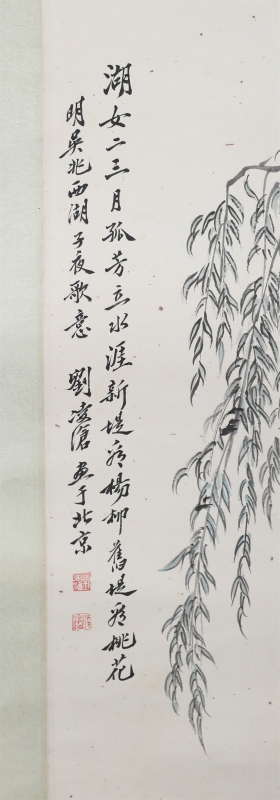 湖女二三月孤芳立水涯新堤看楊柳舊堤看桃花
明吳兆西湖子夜歌意　劉凌滄画于北京